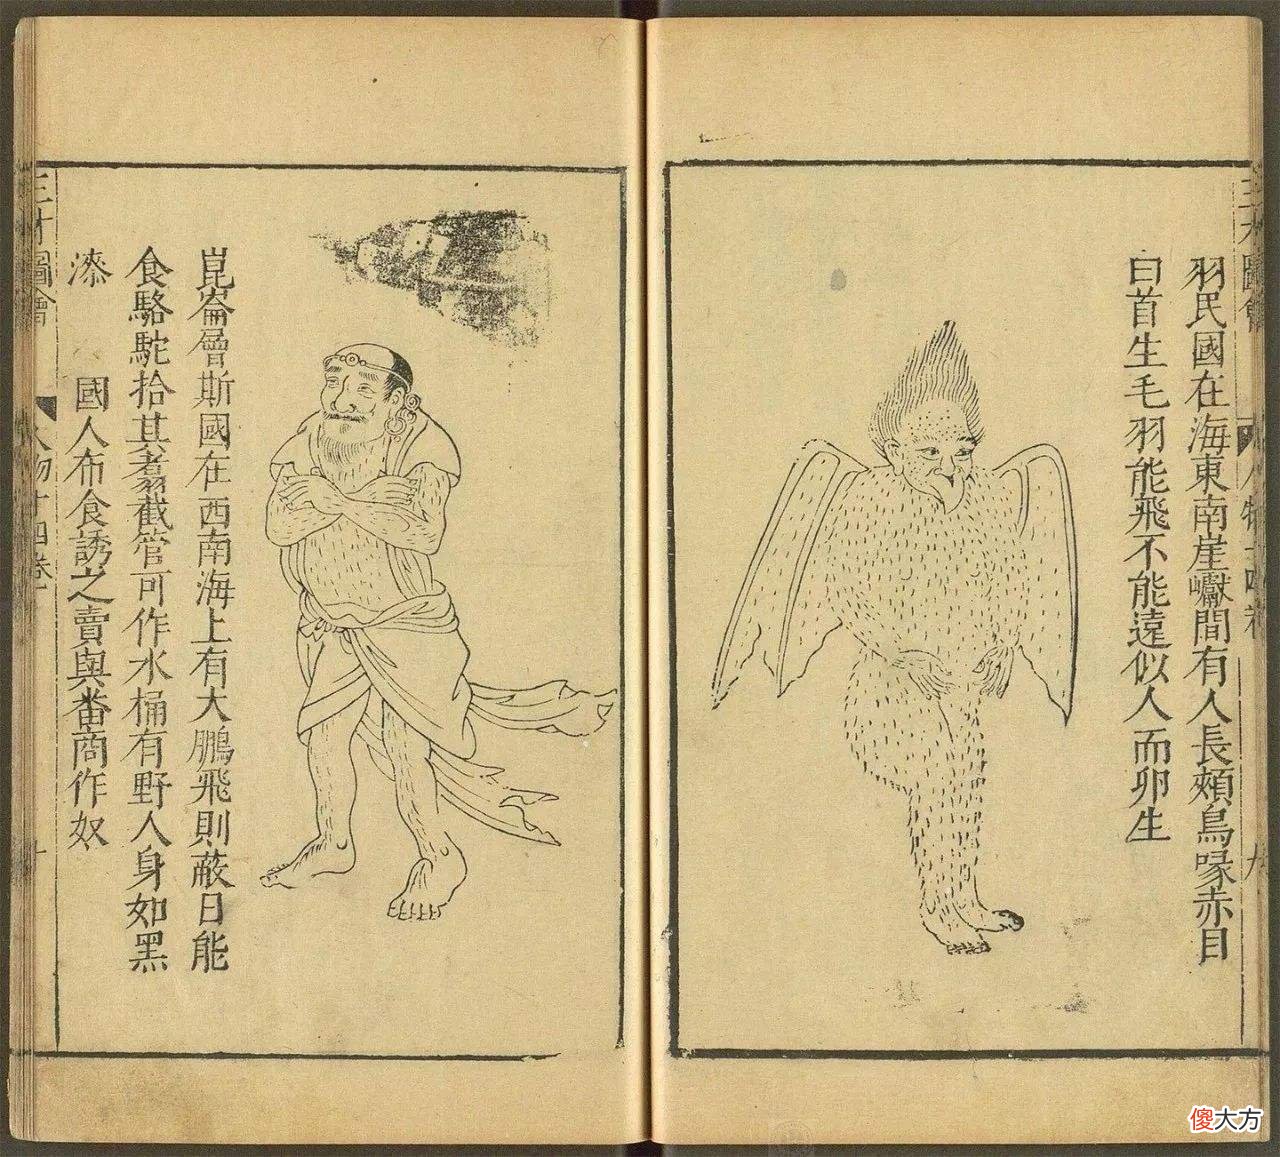 三才圖會
人物十四卷
九
羽民國在海東南崖巘間有人長頰鳥喙赤目
白首生毛羽能飛不能遠似人而卵生
崑崙層斯國在西南海上有大鵬飛則蔽日能
食駱駝拾其翥截管可作水桶有野人身如黑
漆 國人布食誘之賣與番商作奴
三才圖會
人物十四卷
十
傻大方